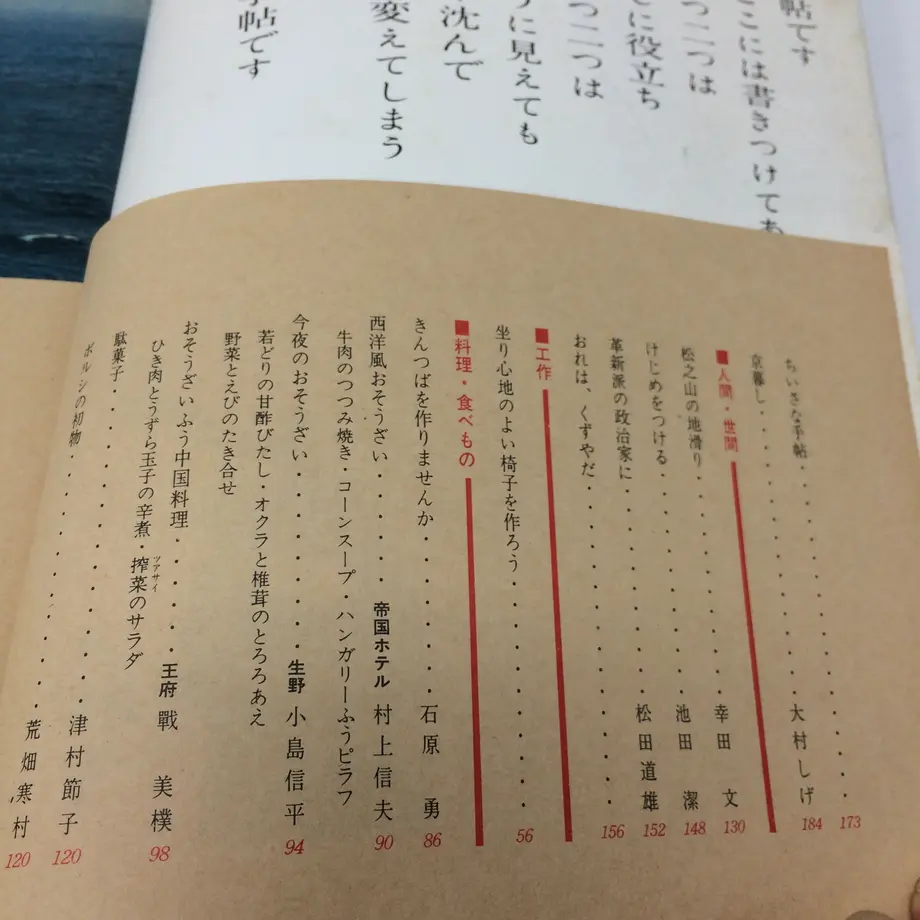 帖です
ここには書きつけてあ
つ二つは
に役立ち
つ二つは
うに見えても
沈んで
変えてしまう
手帖です
ちいさな手帖・・・・・・・・・・173
京暮し・・・・・・・・大村しげ 184
■人間・世間
松之山の地滑り・・・・・・幸田 文 130
けじめをつける・・・・・・池田 潔 148
革新派の政治家に・・・・・松田道雄 152
おれは、くずやだ・・・・・・・・156
■工作
坐り心地のよい椅子を作ろう・・・・・・56
■料理・食べもの
きんつばを作りませんか・・・・・・石原 勇 86
西洋風おそうざい・・・・・帝国ホテル 村上信夫 90
牛肉のつつみ焼き・コーンスープ・ハンガリーふうピラフ
今夜のおそうざい・・・・・・・生野 小島信平 94
若どりの甘酢びたし・オクラと椎茸のとろろあえ
野菜とえびのたき合せ
おそうざいふう中国料理・・・・・王府 戰 美樸 98
ひき肉とうずら玉子の辛煮・搾菜のサラダ
ツアサイ
駄菓子・・・・・・・・・・・津村節子 120
ボルシの初物・・・・・・・・・・荒畑寒村 120